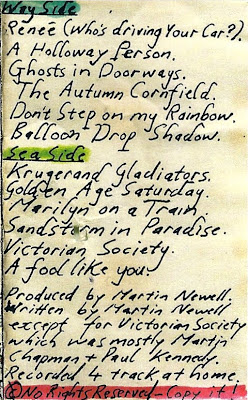 Way Side
Renée (Who's driving Your Car?).
A Holloway Person.
Ghosts in Doorways.
The Autumn Cornfield.
Don't Step on my Rainbow.
Balloon Drop Shadow.
Sea Side
Krugerand Gladiators.
Golden Age Saturday.
Marilyn on a Train
Sandstorm in Paradise.
Victorian Society.
A fool like you.
Produced by Martin Newell.
Written by Martin Newell
except for Victorian Society
which was mostly Martin
Chapman + Paul Kennedy.
Recorded 4 track at home.
No Rights Reserved - Copy it!